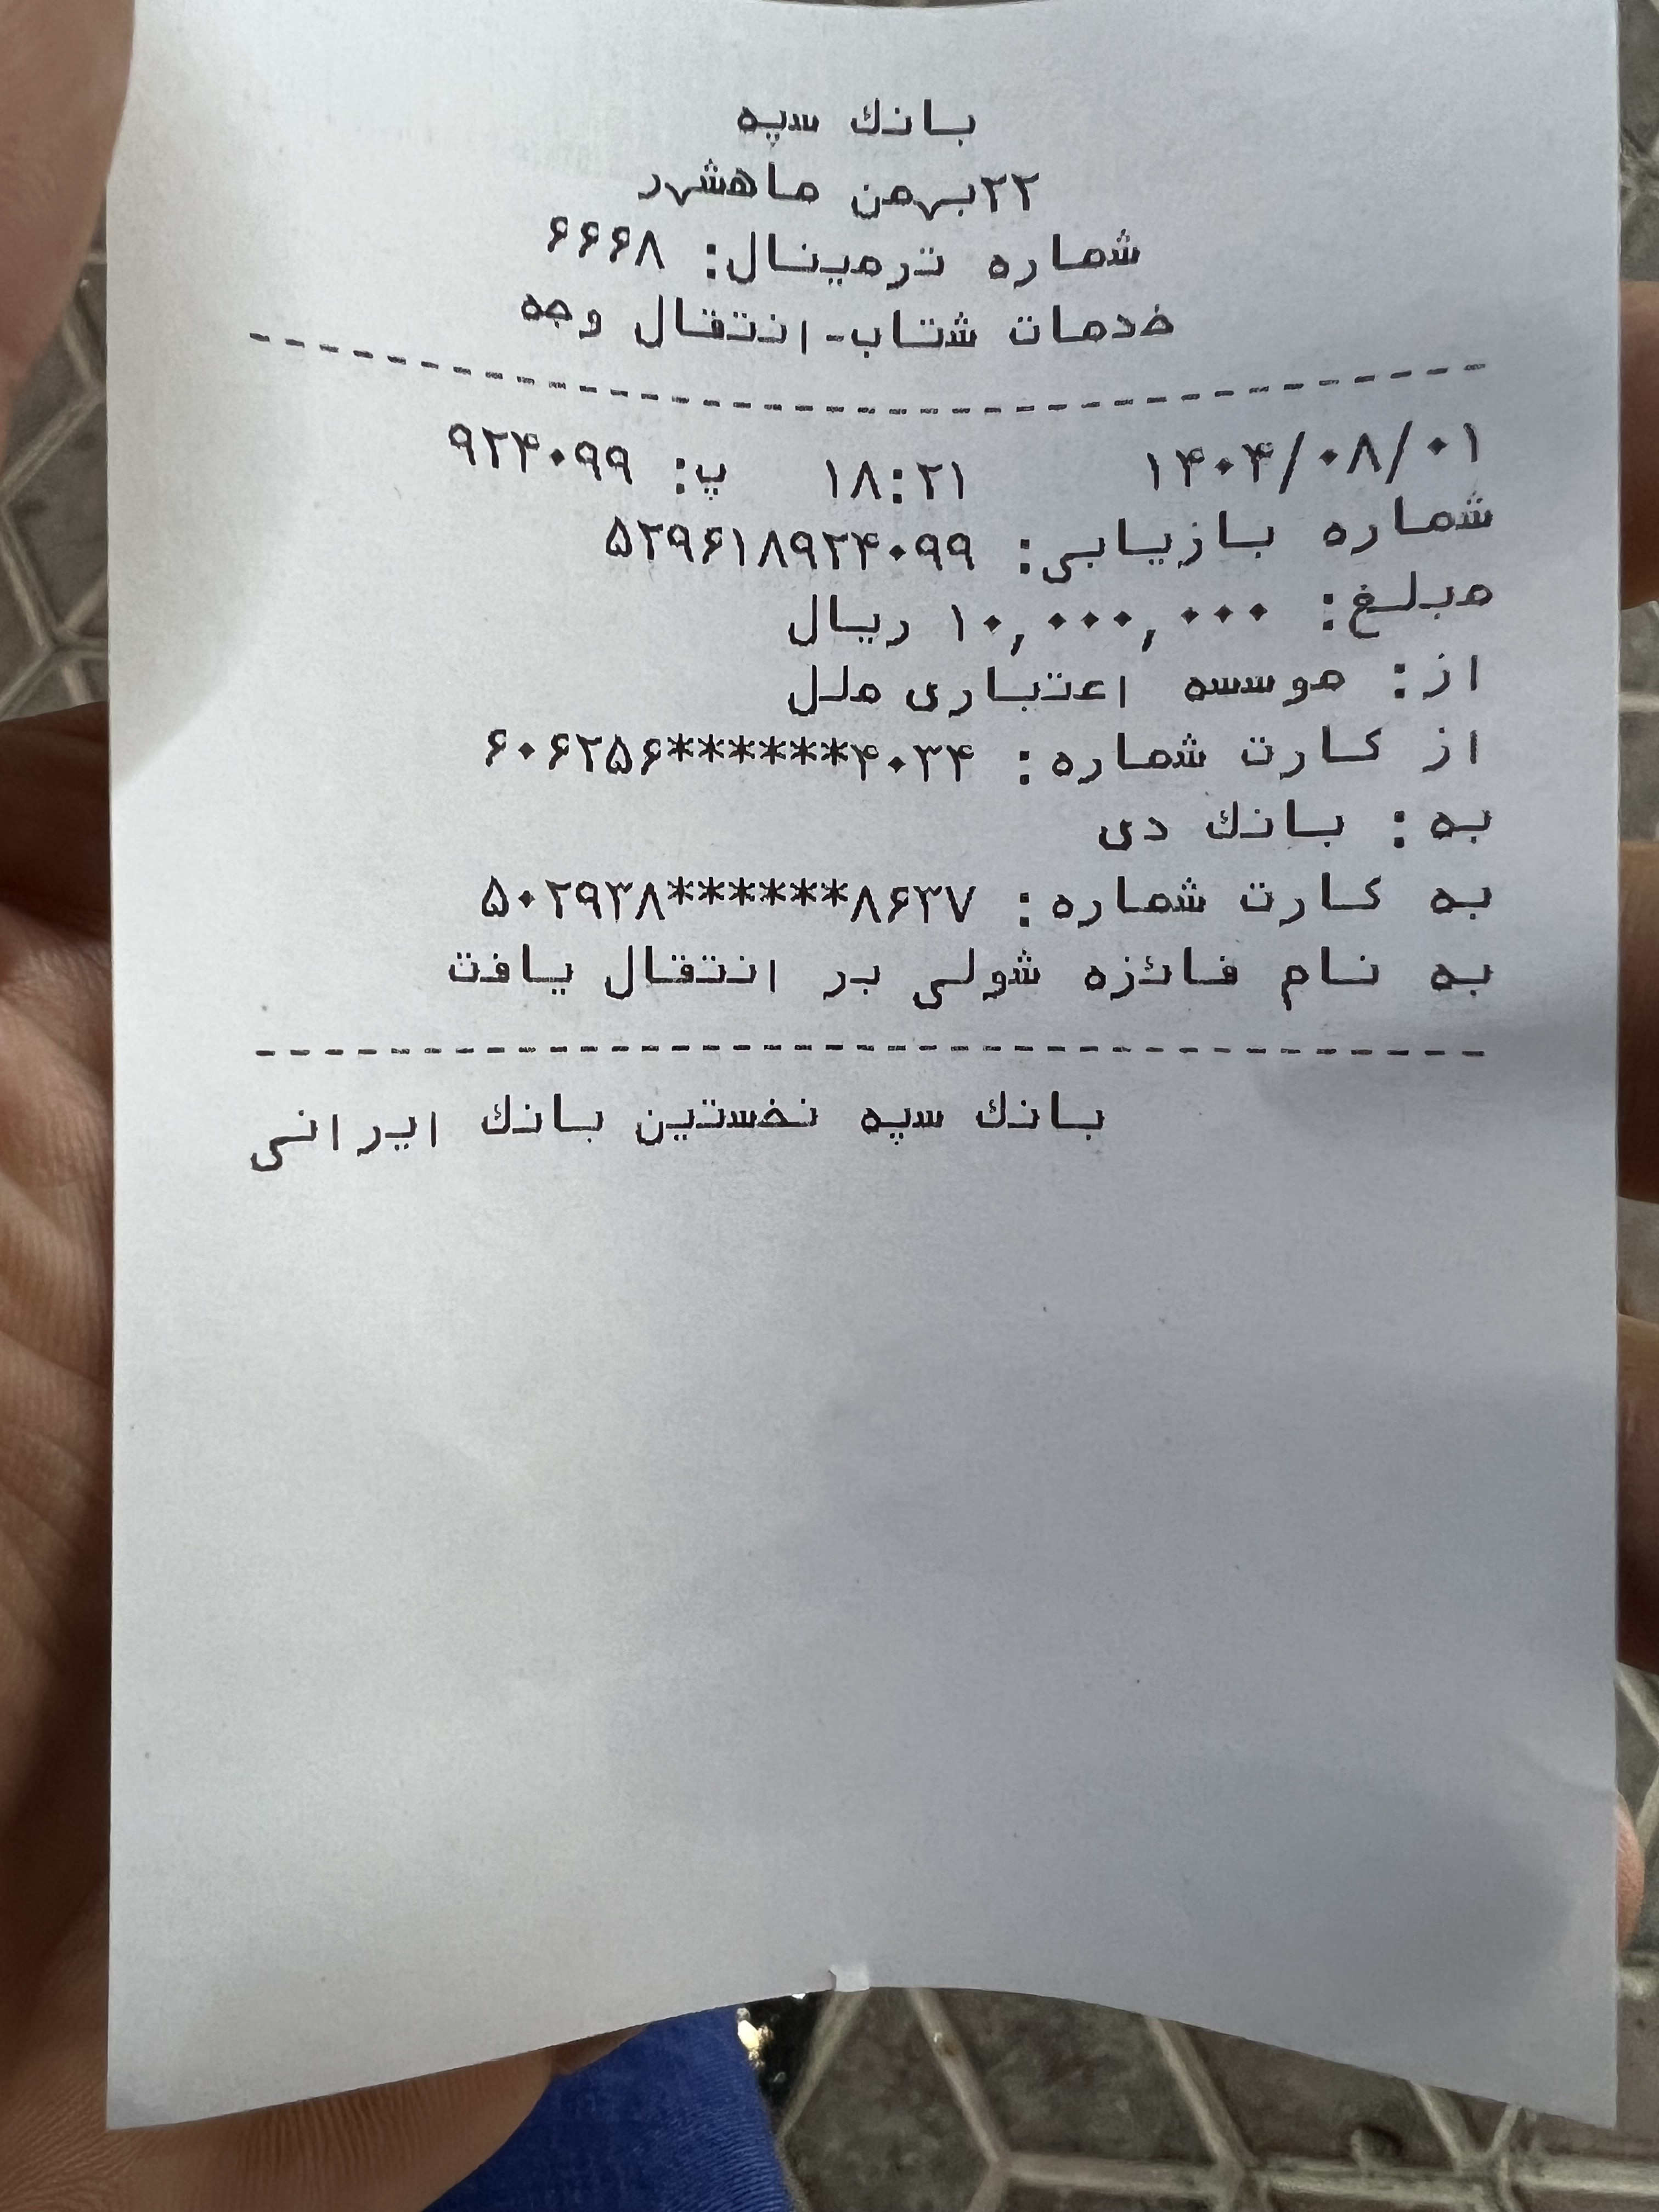 بانک سپه
۲۲بهمن ماهشهر
شماره ترمینال: ۶۶۶۸
خدمات شتاب-انتقال وجه
۱۴۰۴/۰۸/۰۱ ۱۸:۲۱ پ: ۹۲۴۰۹۹
شماره بازیابی: ۵۲۹۶۱۸۹۲۴۰۹۹
مبلغ: ۱۰,۰۰۰,۰۰۰ ریال
از: موسسه اعتباری ملل
از کارت شماره: ۶۰۶۲۵۶******۴۰۳۴
به: بانک دی
به کارت شماره: ۵۰۲۹۳۸******۸۶۳۷
به نام فائزه شولی بر انتقال یافت
بانک سپه نخستین بانک ایرانی